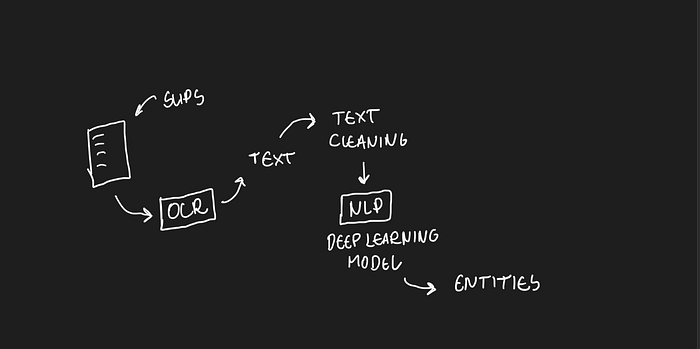 SLIPS
OCR
TEXT
TEXT
CLEANING
NLP
DEEP LEARNING
MODEL
ENTITIES